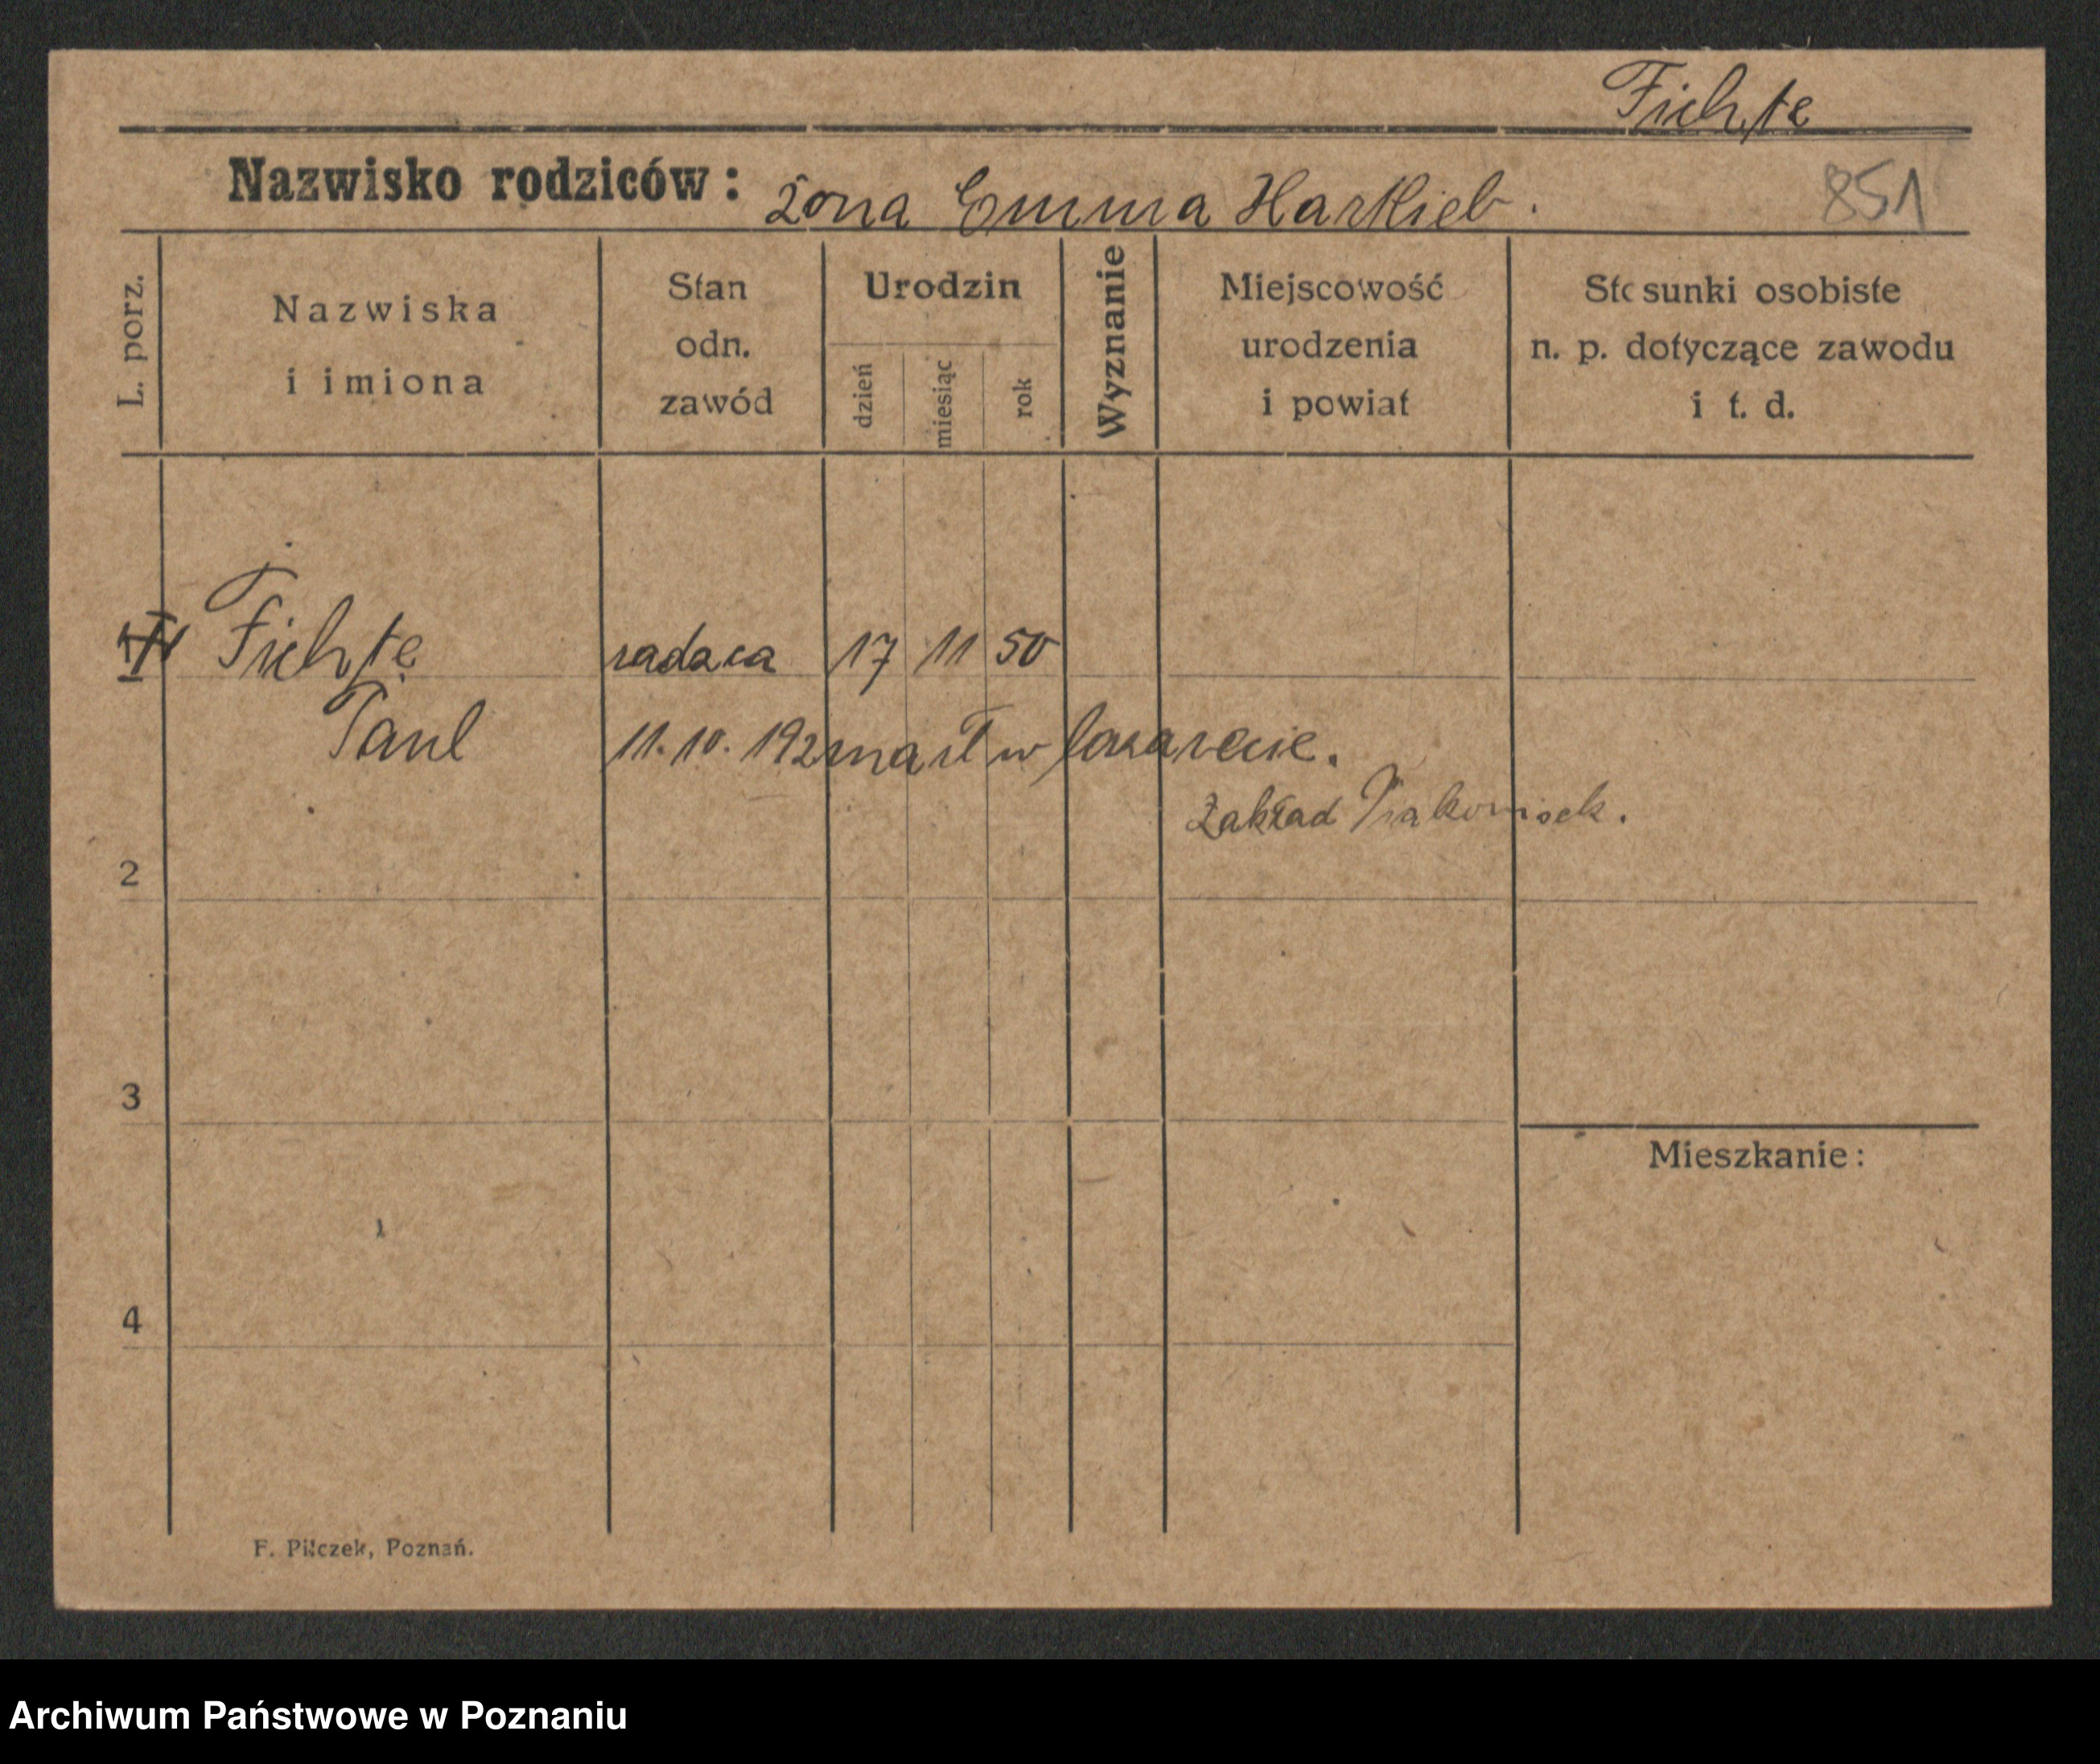 Fichte
Nazwisko rodziców: żona Emma Hartlieb.
851
L. porz.
Nazwiska
i imiona
Stan
odn.
zawód
Urodzin
dzień
miesiąc
rok
Wyznanie
Miejscowość
urodzenia
i powiat
Stosunki osobiste
n. p. dotyczące zawodu
i t. d.
1 Fichte radzca 17 11 50
Paul 11. 10. 192 marł w lazarecie.
Zakład
2
3
Mieszkanie:
4
F. Pilczek, Poznań.
Archiwum Państwowe w Poznaniu